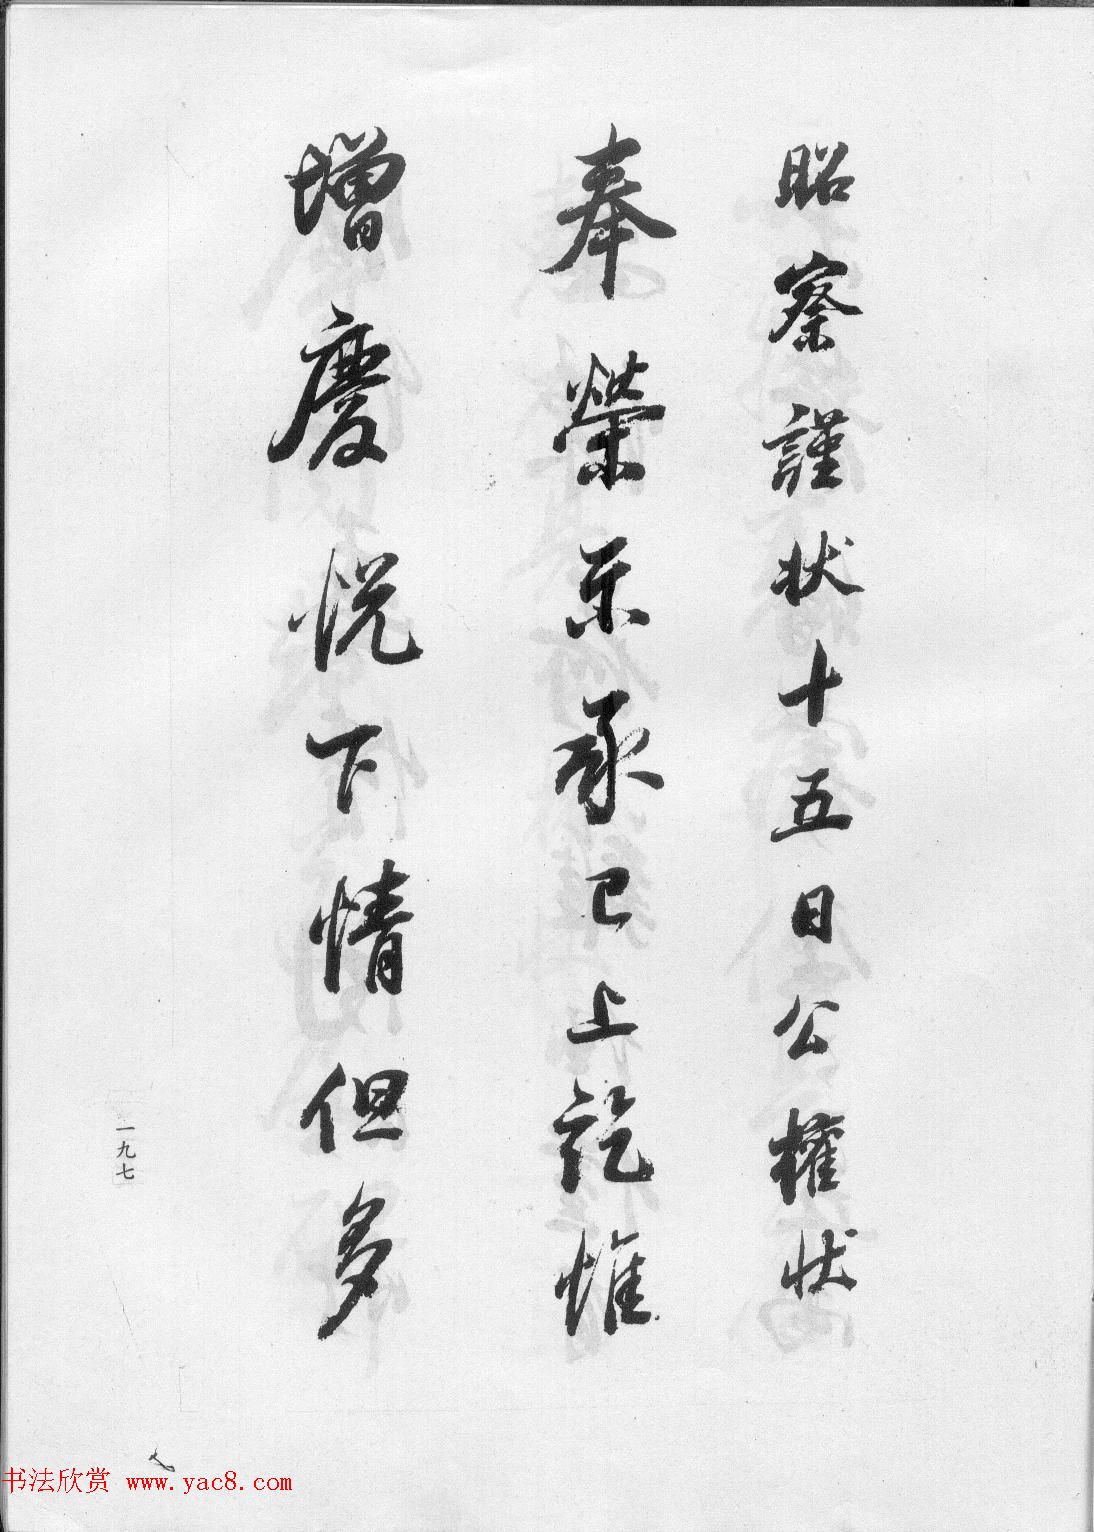 昭察謹状十五日公權状
奉榮示承已上訖惟
增慶悦下情但多
一九七
书法欣赏 www.yac8.com